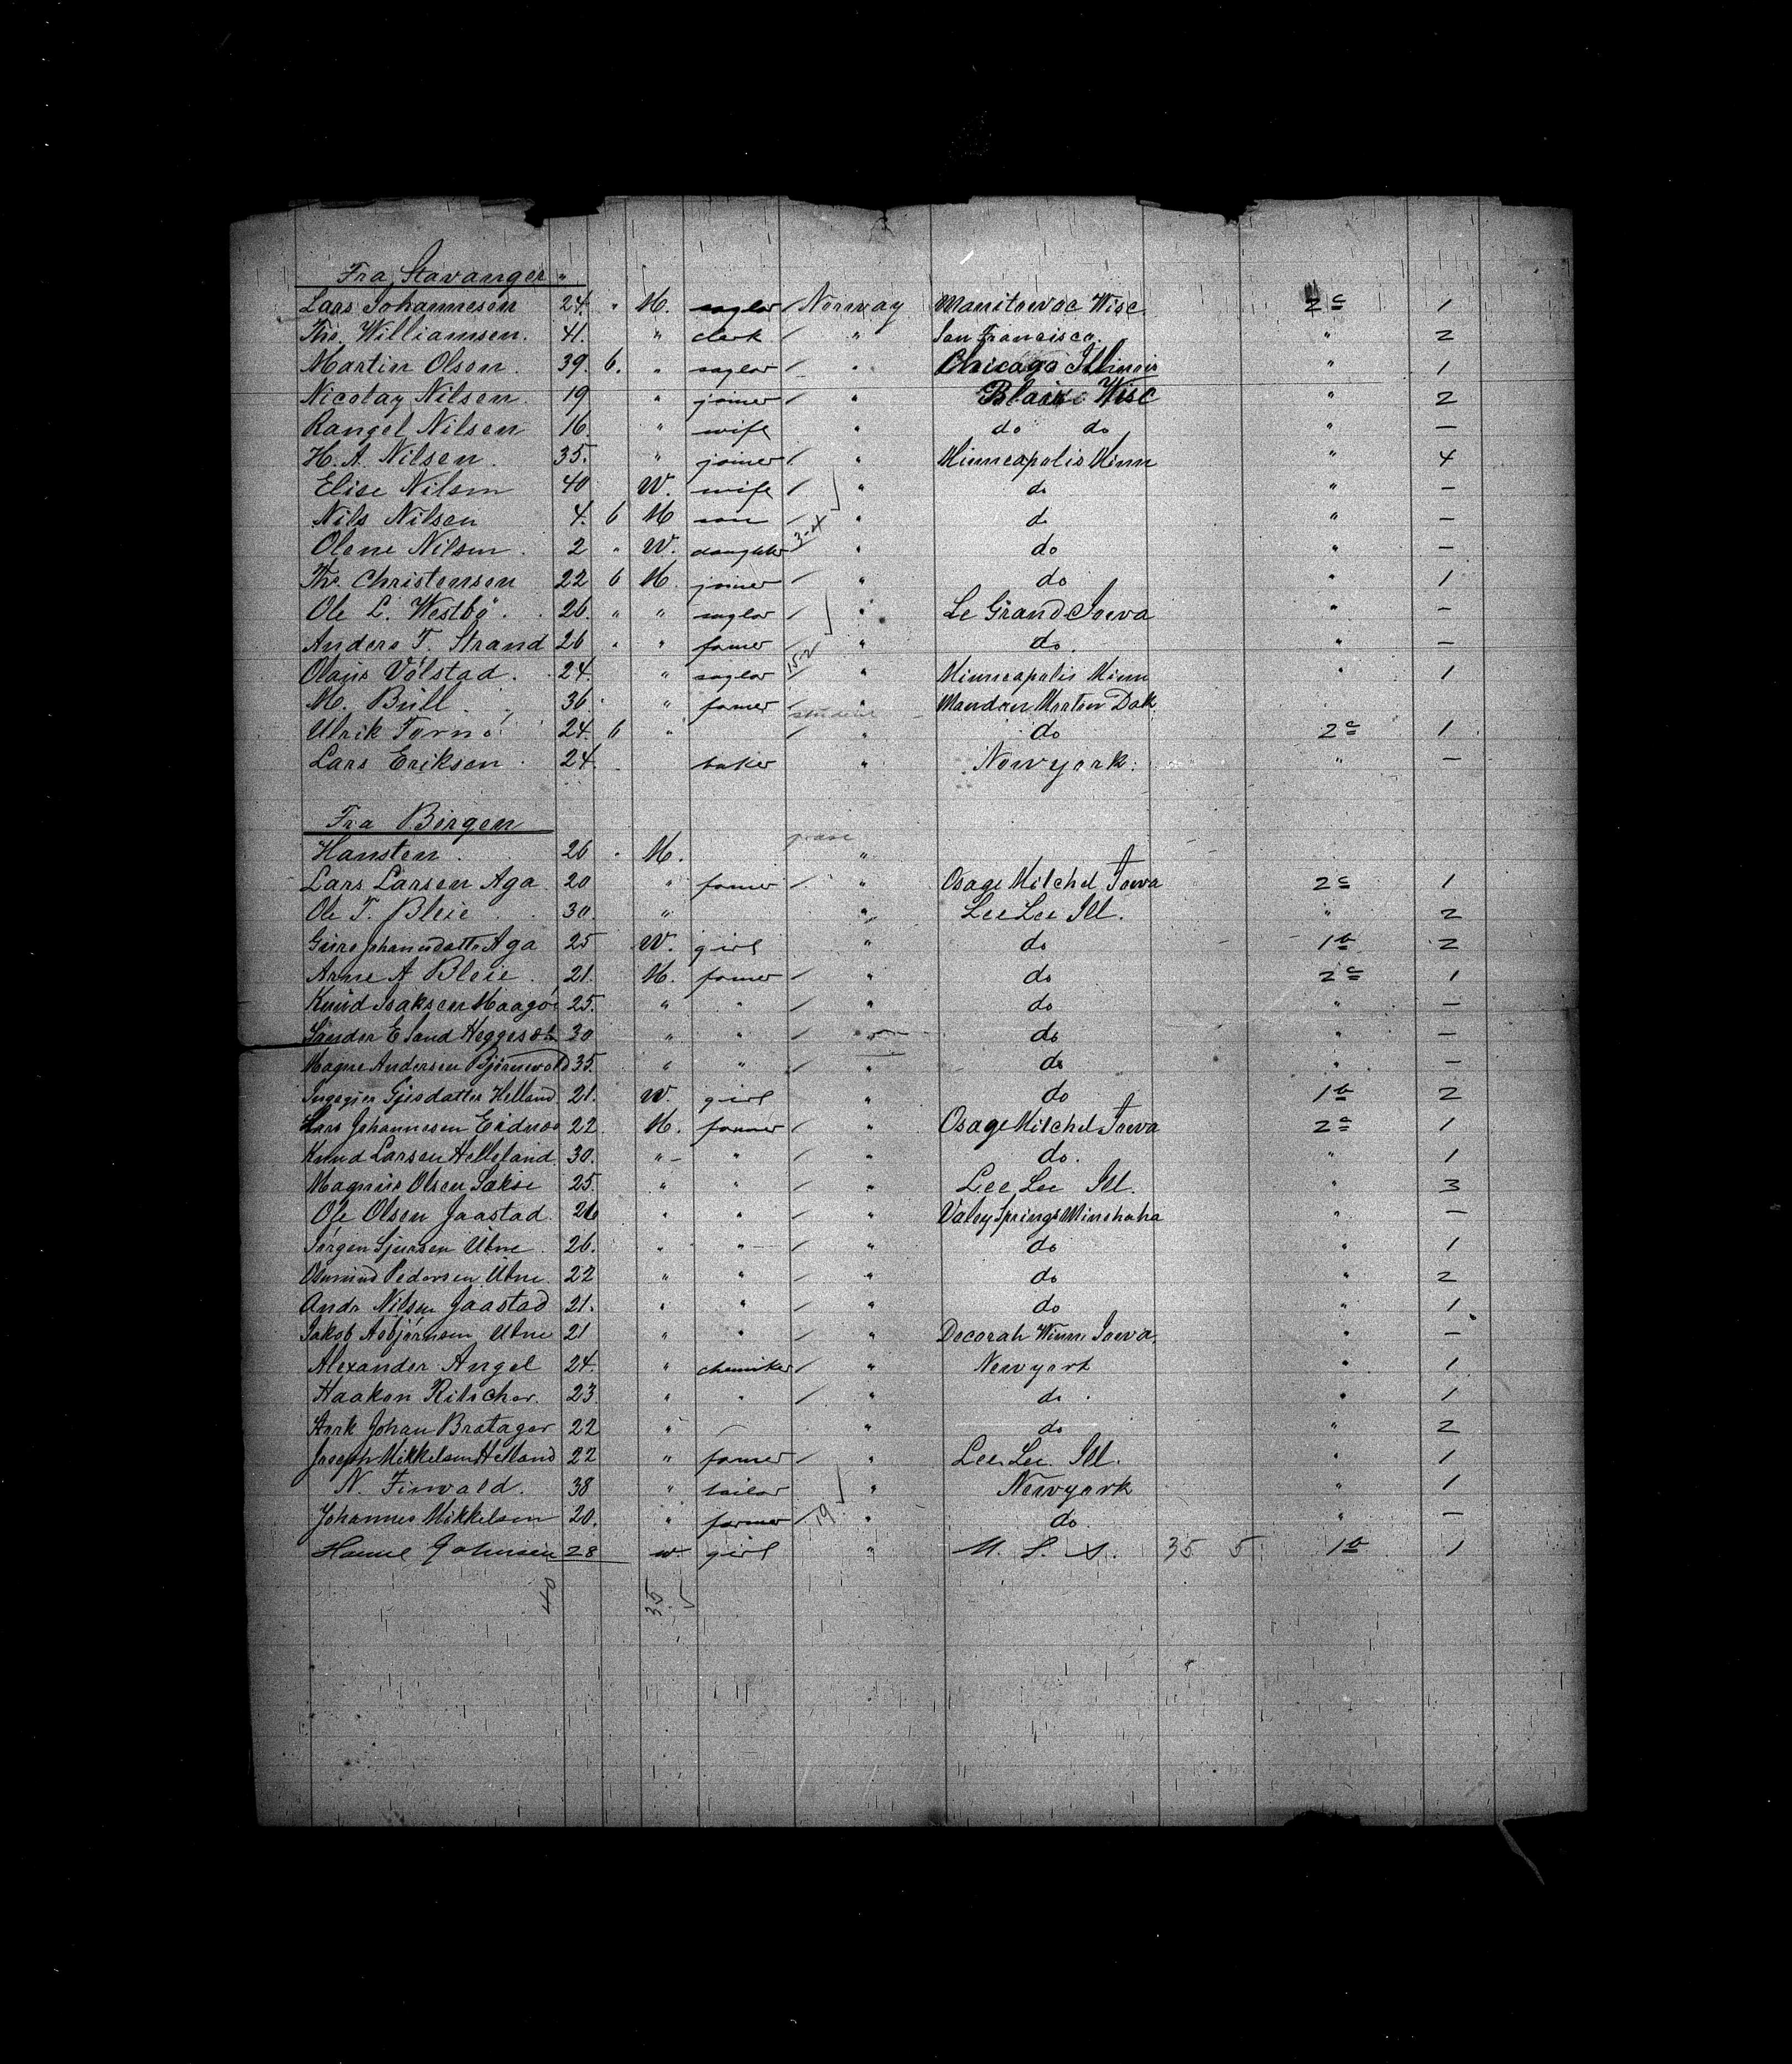 Fra Stavanger "
Lars Johannesen 24. " M. saylor / Norway Manitowac Wisc 2c 1
Ths. Williamsen. 41. " clerk / " San Francisco. " 2
Martin Olsen. 39. 6. " saylor / " Chicago Illinois " 1
Nicolay Nilsen. 19 " joiner / " Blair Wisc " 2
Rangel Nilsen 16. " wife " do do " —
H. A. Nilsen. 35. " joiner / " Minneapolis Minn " 4
Elise Nilsen 40 W. wife / " do " —
Nils Nilsen 4. 6 M son / " do " —
Olene Nilsen. 2 " W. daughter 3-4 " do " —
Ths. Christensen 22 6 M. joiner / " do " 1
Ole L. Westbö. 26. " " saylor / " Le Grand Iowa " —
Anders T. Strand 26 " " famer / " do. " —
Olaus Völstad. 24. " saylor 15-2 / " Minneapolis Minn " 1
M. Bull. 36. " famer / " Mandan Morton Dak.
Ulrik 24. 6 " student / " do 2c 1
Lars Eriksen. 24. baker " Newyork. " —
Fra Bergen
Hansten. 26 " M. "
Lars Larsen Aga 20 " famer / " Osage Mitchel Iowa 2c 1
Ole T. Bleie. 30. " " Lee Lee Ill. " 2
Guro Johannsdatter Aga 25 W. girl " do 1b 2
Arne A Bleie. 21. M. famer / " do 2c 1
Knud Isaksen Maagö 25. " " / " do " —
Sander E 30 " " / " do " —
Magne Andersen 35. " " / " do " —
Helland 21. W. girl " do 1b 2
Lars Johannesen Eidnes 22 M. famer / " Osage Mitchel Iowa 2c 1
Knud Larsen Helleland 30. " — " / " do. " 1
Magnus Olsen Sekse 25. " " / " Lee Lee Ill. " 3
Ole Olsen Jaastad. 26 " " / " Valey Springs Minehaha " —
Jörgen Sjursen Utne. 26. " " / " do " 1
Asmund Pedersen Utne. 22 " " / " do " 2
Andr Nilsen Jaastad 21. " " / " do " 1
Jakob Asbjörnsen Utne 21 " " / " Decorah Winn. Iowa. " —
Alexander Angel 24. " chemiker / " Newyork " 1
Haakon Ritscher. 23 " " / " do. " 1
Johan Bratager 22 " " do " 2
Joseph Mikkelsen Helland 22 " famer / " Lee Lee Ill. " 1
N. Finwald. 38 " tailor " Newyork " 1
Johannes Mikkelsen 20. " farmer / 19 " do " —
Johnsen 28 w. girl " U. S. A. 35 5 1b 1
40 35